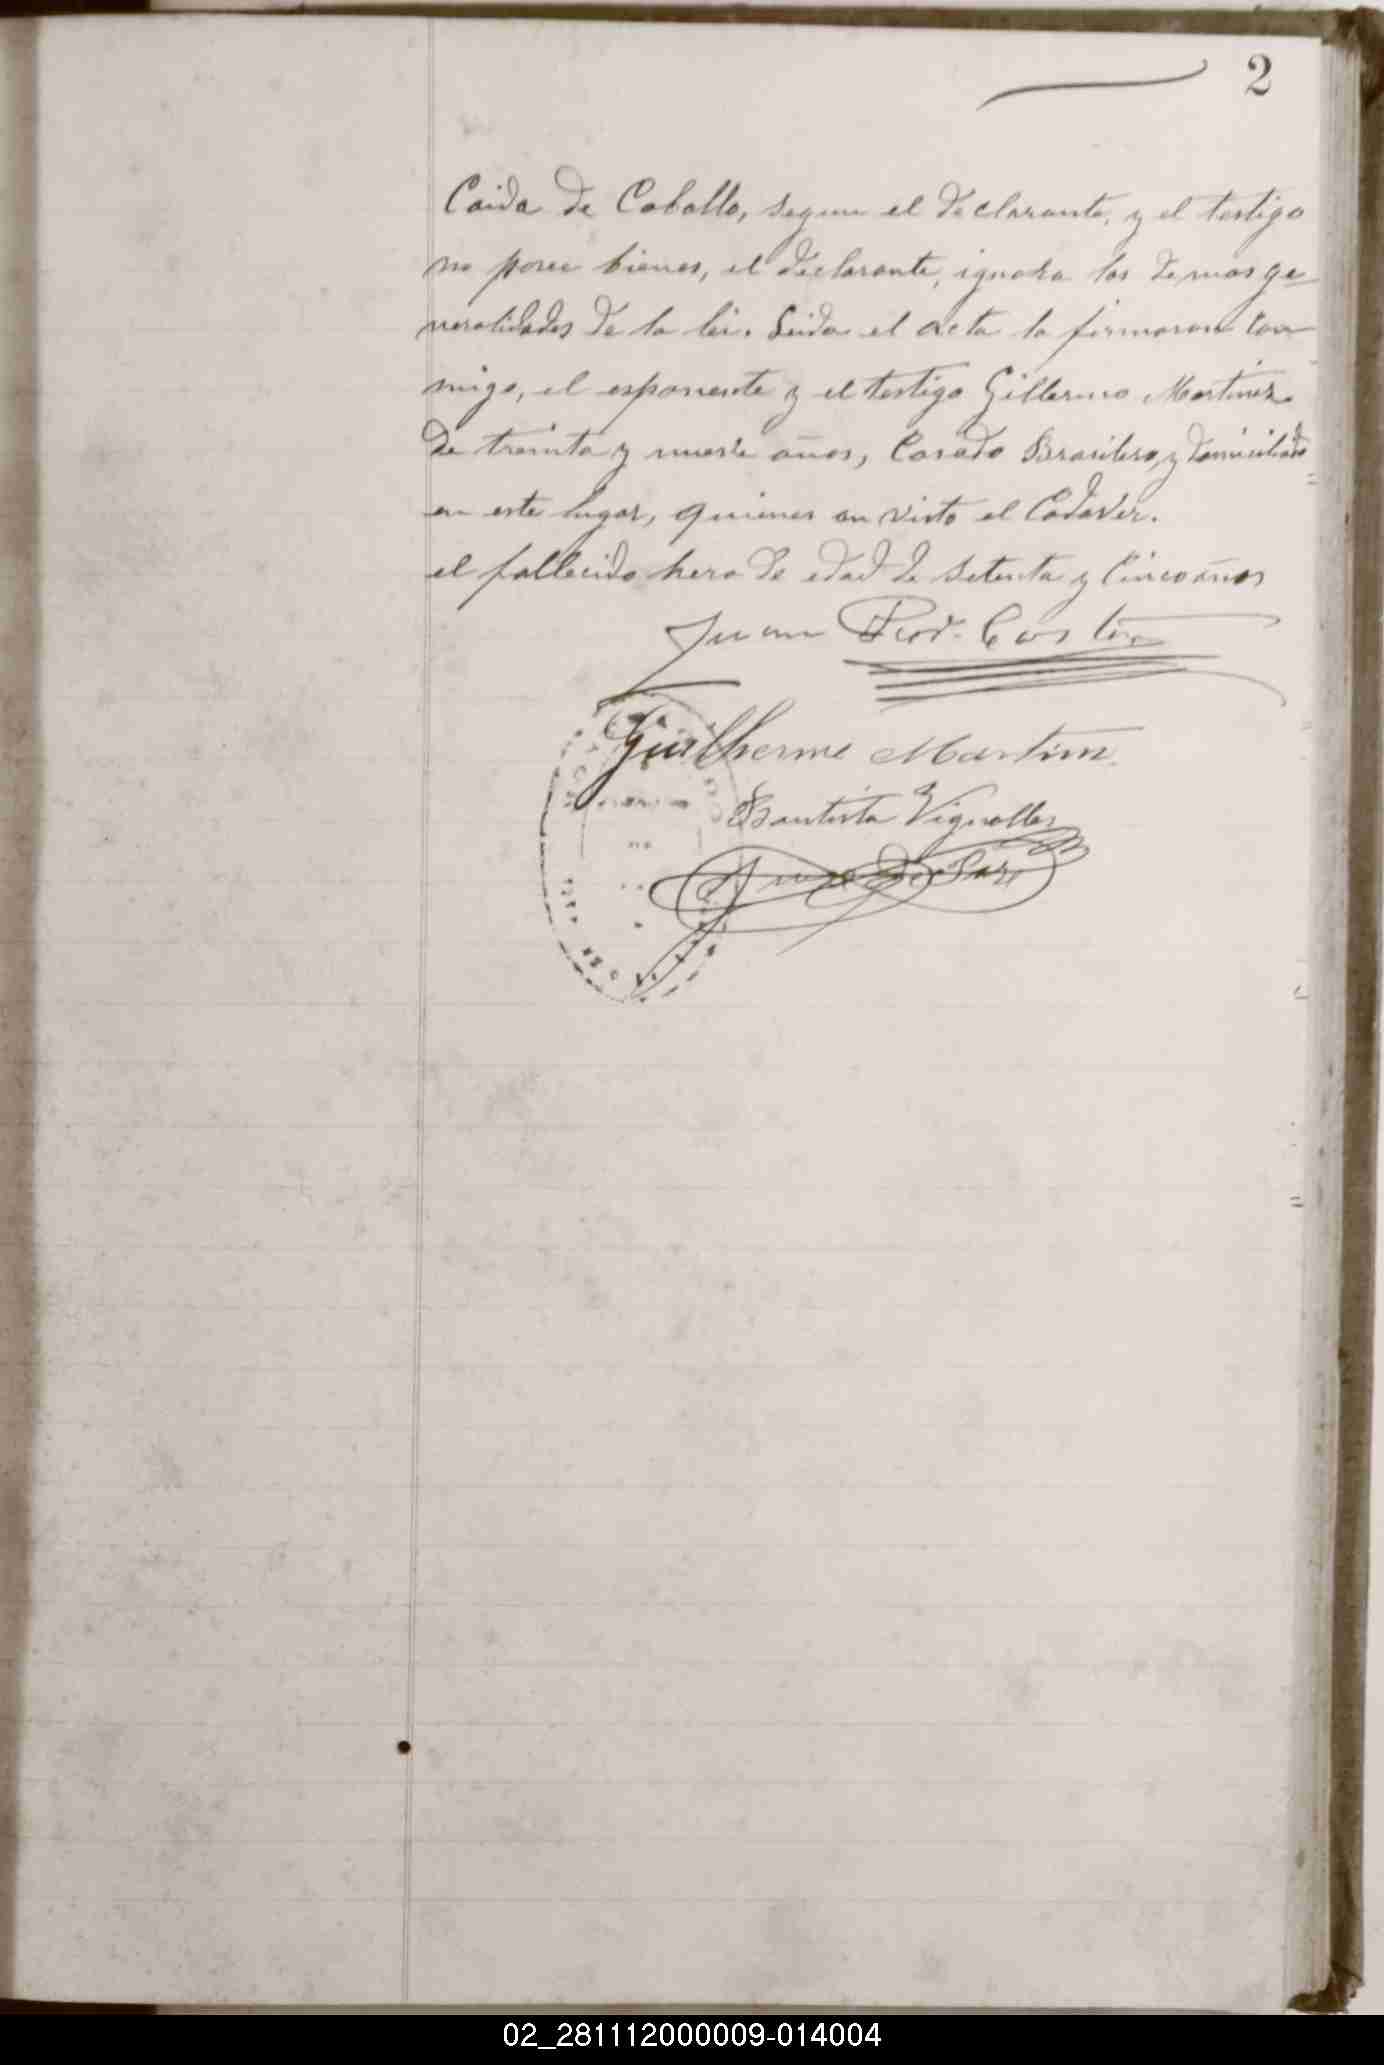 2
Caida de Caballo, segun el declarante, y el testigo
no posee bienes, el declarante, ignora las demas ge-
neralidades de la lei. Leida el acta la firmaron con
migo, el esponente y el testigo Gillermo Martinez
de treinta y nueve años, Casado Brasilero, y domiciliado
en este lugar, quienes an visto el Cadaver.
el fallecido hera de edad de setenta y Cinco años
Juan Rod. Costa
Guilherme Martins
Bautista Vignolles
Juez de Paz
02_281112000009-014004